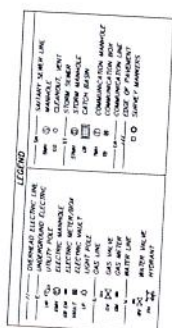 LEGEND
OVERHEAD ELECTRIC LINE
UNDERGROUND ELECTRIC
UTILITY POLE
ELECTRIC MANHOLE
ELECTRIC METER/BOX
ELECTRIC VAULT
LIGHT POLE
GAS LINE
GAS VALVE
GAS METER
WATER LINE
WATER VALVE
HYDRANT
SANITARY SEWER LINE
MANHOLE
CLEANOUT, VENT
STORM SEWER
STORM MANHOLE
CATCH BASIN
COMMUNICATION MANHOLE
COMMUNICATION BOX
COMMUNICATION LINE
EDGE OF PAVEMENT
SURVEY MARKERS